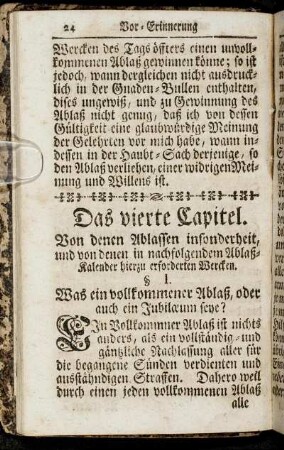 24 Vor-Erinnerung
Wercken des Tags öffters einen unvoll-
kommenen Ablaß gewinnen könne; so ist
jedoch, wann dergleichen nicht ausdruck-
lich in der Gnaden-Bullen enthalten,
dises ungewiß, und zu Gewinnung des
Ablaß nicht genug, daß ich von dessen
Gültigkeit eine glaubwürdige Meinung
der Gelehrten vor mich habe, wann in-
dessen in der Haubt-Sach derjenige, so
den Ablaß verliehen, einer widrigen Mei-
nung und Willens ist.
Das vierte Capitel.
Von denen Ablassen insonderheit,
und von denen in nachfolgendem Ablaß-
Kalender hierzu erforderten Wercken.
§ I.
Was ein vollkommener Ablaß, oder
auch ein Jubilæum seye?
EIn Vollkommner Ablaß ist nichts
anders, als ein vollständig- und
gäntzliche Nachlassung aller für
die begangene Sünden verdienten und
ausständigen Straffen. Dahero weil
durch einen jeden vollkommenen Ablaß
alle